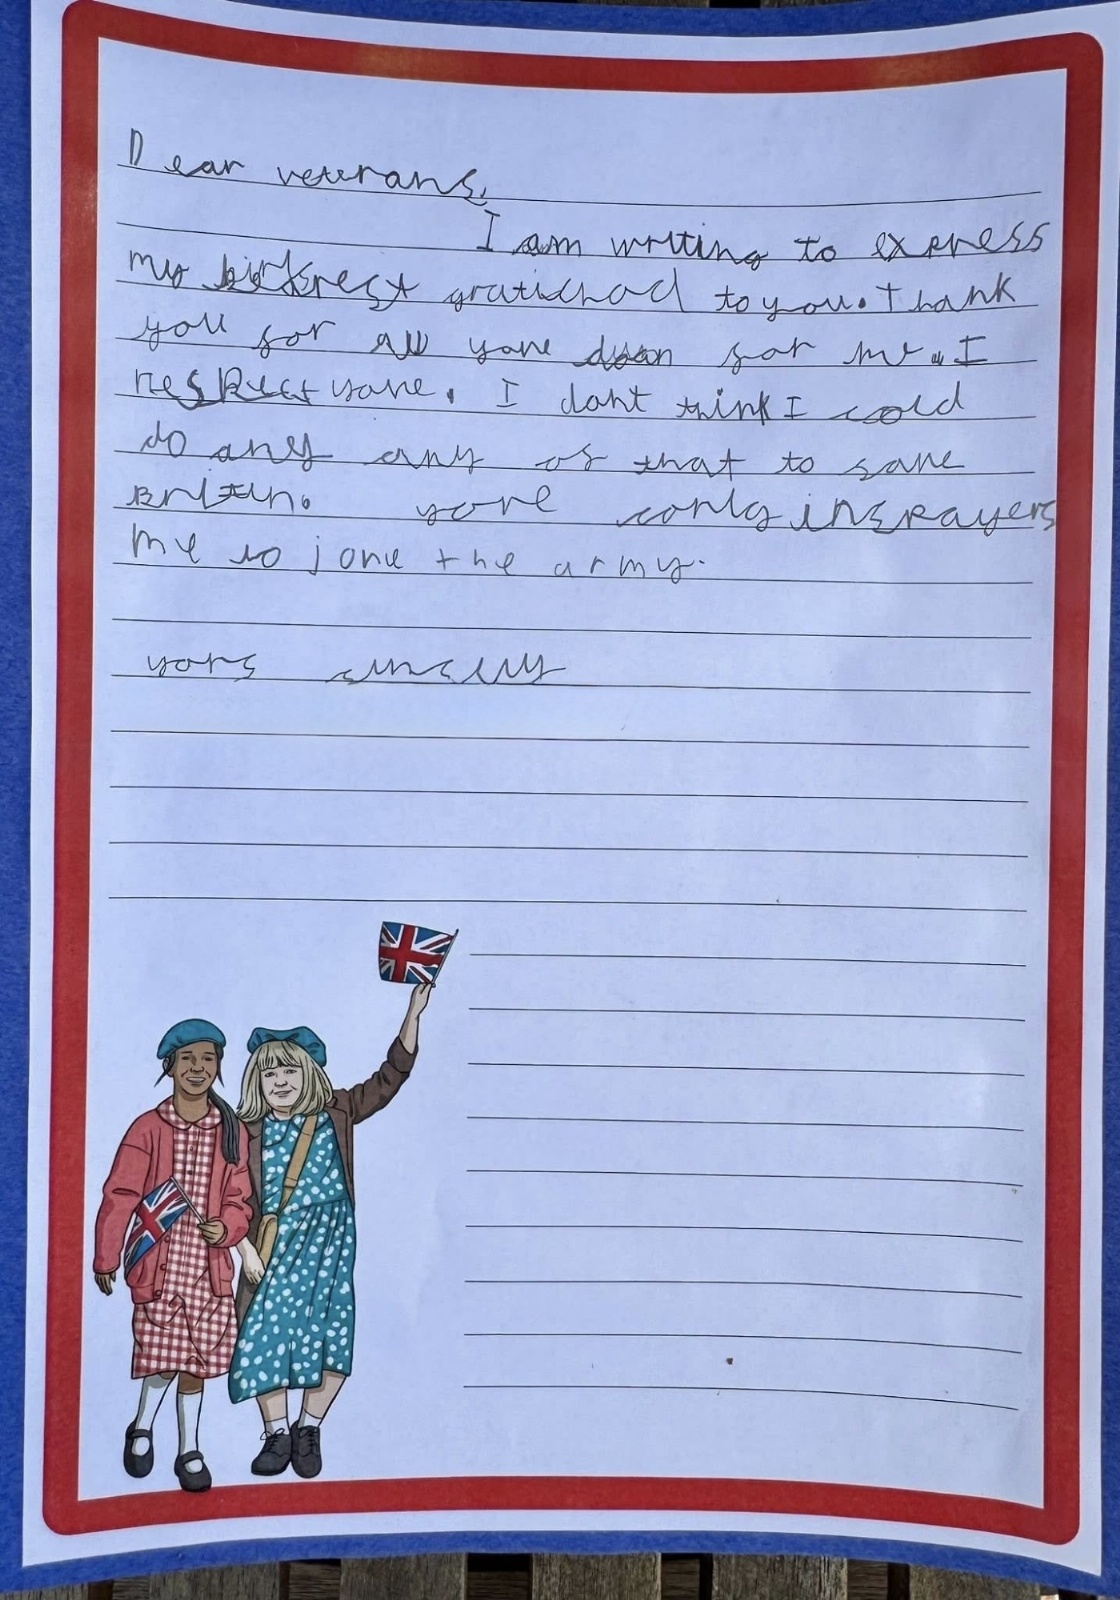 Dear veterans,
I am writing to express
my gratichod to you. Thank
you for all youve doan for me. I
respect youve. I dont think I cold
do any any of that to save
Britin. yore only inspayers
me to jone the army.
yors sincelly